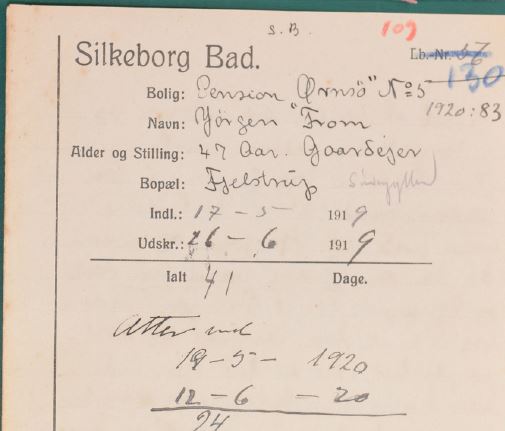 S.B.
109
Silkeborg Bad.
Lb.-Nr. 57
130
Bolig: Pension "Ørnsö" No 5
1920:83
Navn: Jörgen From
Alder og Stilling: 47 Aar. Gaardejer
Bopæl: Fjelstrup
Indl.: 17 - 5 1919
Udskr.: 26 - 6 1919
Ialt 41 Dage.
Atter ind
19 - 5 - 1920
12 - 6 - 20
24